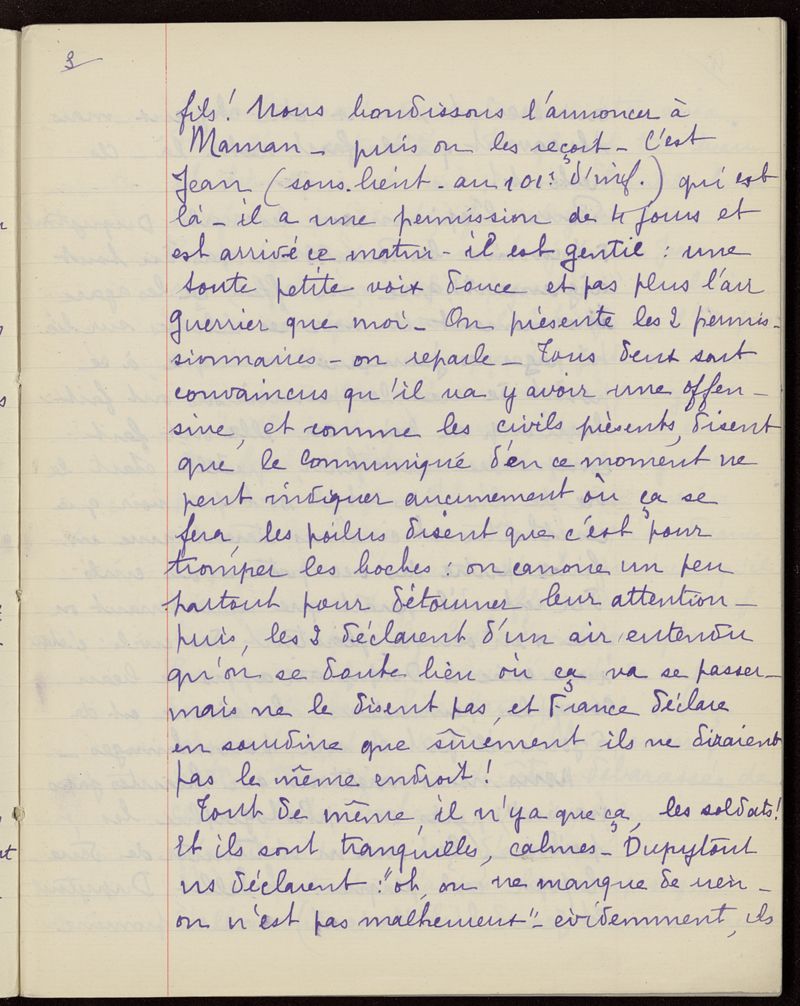 3
fils! Nous bondissons l'annoncer à
Maman - puis on les reçoit - C'est
Jean (sous-lieut. au 101e d'inf.) qui est
là - il a une permission de 4 jours et
est arrivé ce matin - il est gentil : une
toute petite voix douce et pas plus l'air
guerrier que moi - On présente les 2 permis-
sionnaires - on reparle - Tous deux sont
convaincus qu'il va y avoir une offen-
sive, et comme les civils présents, disent
que le communiqué d'en ce moment ne
peut indiquer aucunement où ça se
fera, les poilus disent que c'est pour
tromper les boches : on canone un peu
partout pour détourner leur attention -
puis, les 2 déclarent d'un air entendu
qu'on se doute bien où ça va se passer -
mais ne le disent pas, et France déclare
en sourdine que sûrement ils ne diraient
pas le même endroit!
Tout de même, il n'y a que ça, les soldats!
Et ils sont tranquilles, calmes - Dupytout
ns déclarent : "oh, on ne manque de rien -
on n'est pas malheureux" - évidemment, ils